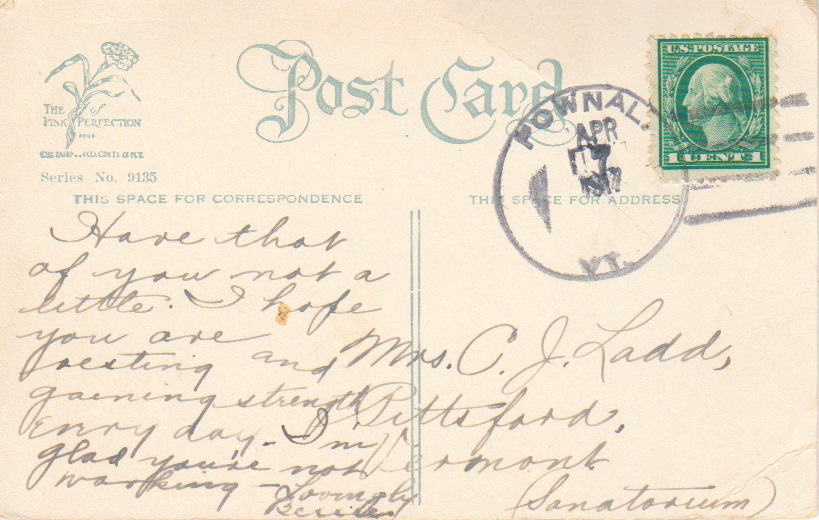 Post Card
THE of
PINK PERFECTION
Series No. 9135
THIS SPACE FOR CORRESPONDENCE
THIS SPACE FOR ADDRESS
POWNAL,
APR
7
1917
VT.
U.S. POSTAGE
1 CENT 1
Have that
of you not a
little. I hope
you are
resting and
gaening strength
every day - I'm
glad you're not
working - Lovingly
Mrs. C. J. Ladd,
Pittsford,
Vermont
(Sanatorium)